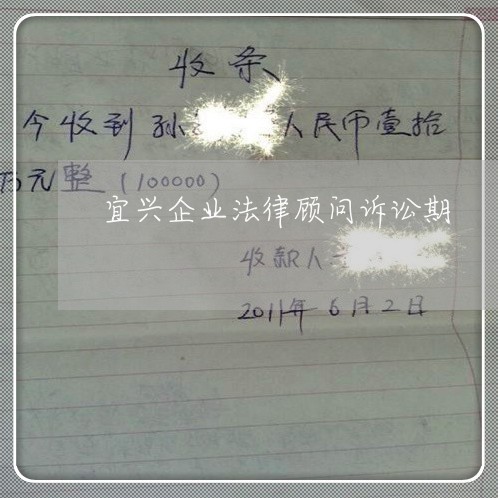 收条
今收到孙 人民币壹拾
万元整（100000）
宜兴企业法律顾问诉讼期
收款人
2011年6月2日